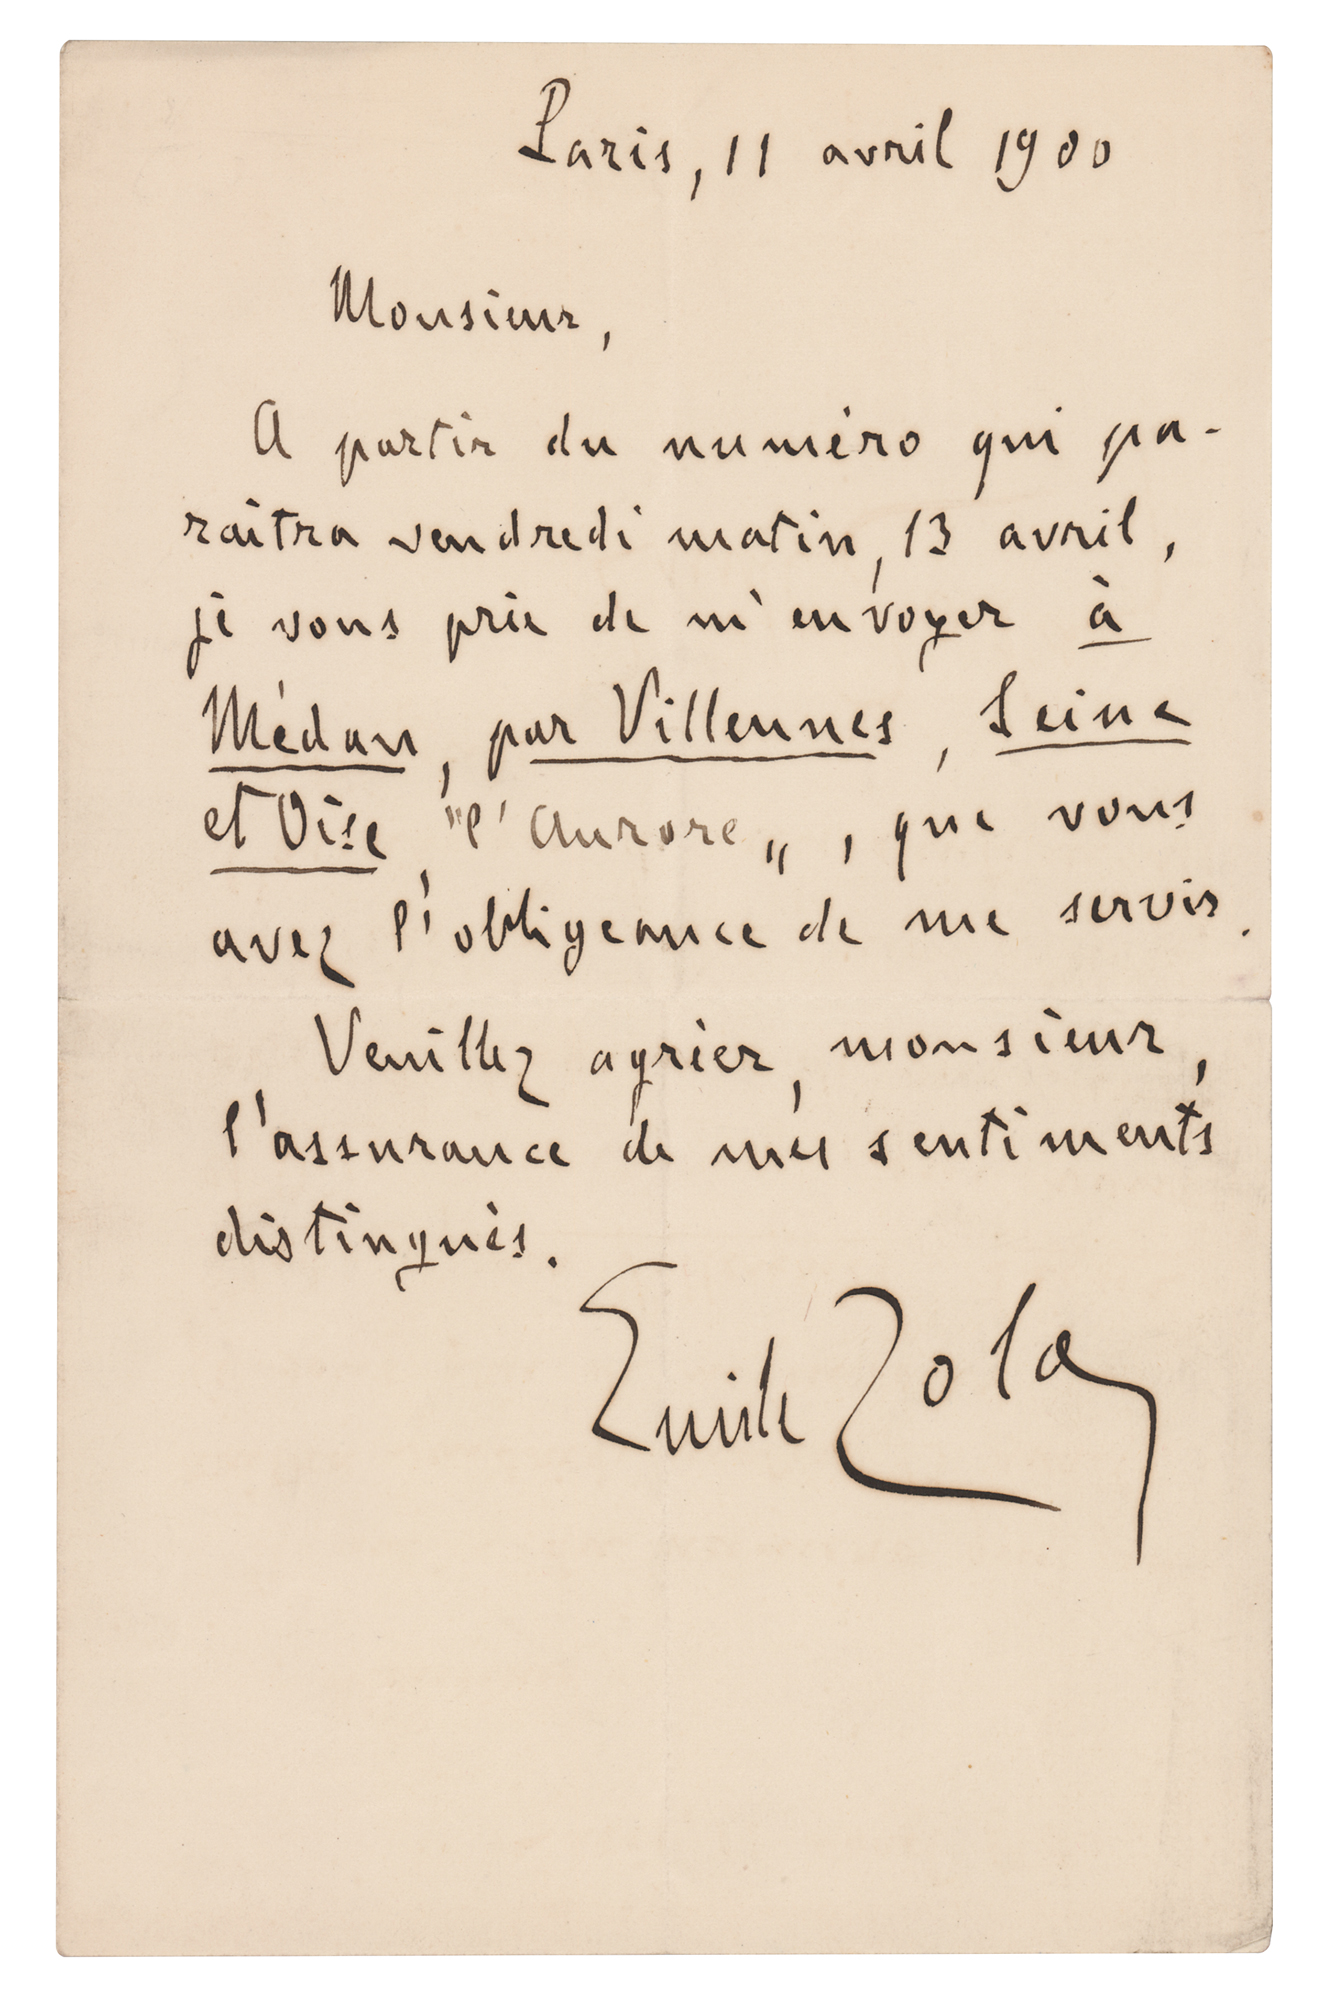 Paris, 11 avril 1900
Monsieur,
A partir du numéro qui pa-
raîtra vendredi matin, 13 avril,
je vous prie de m'envoyer à
Médan, par Villennes, Seine
et Oise, "l'Aurore", que vous
avez l'obligeance de me servir.
Veuillez agréer, monsieur,
l'assurance de mes sentiments
distingués.
Emile Zola